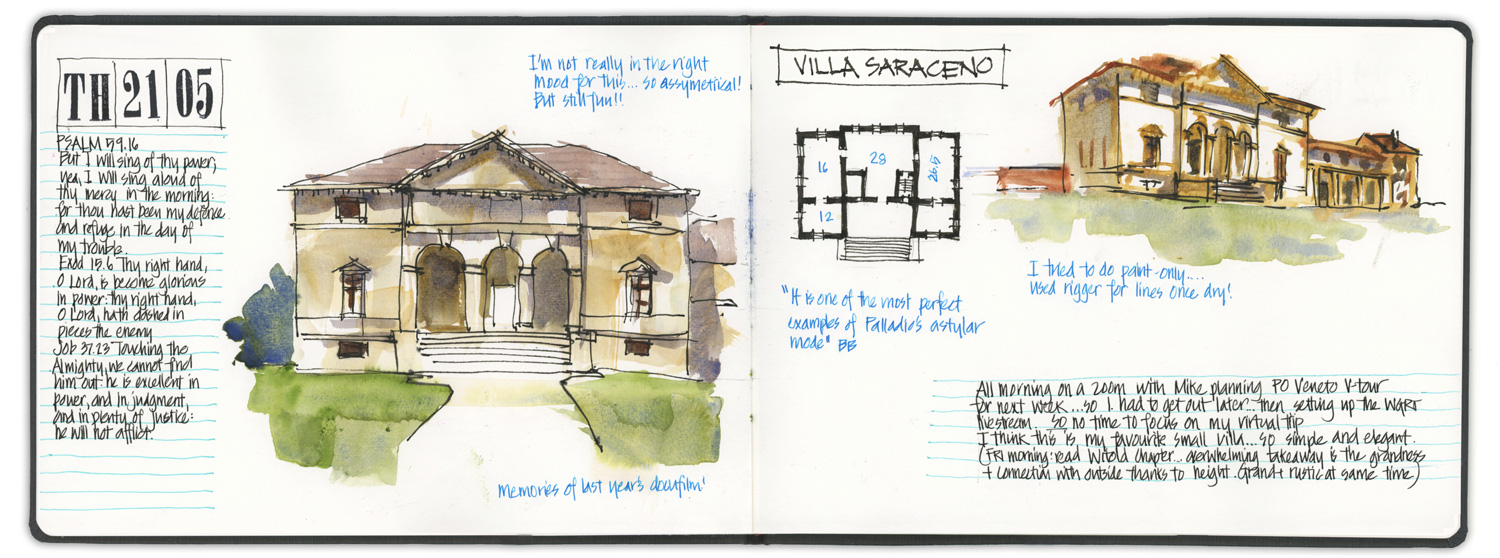 TH 21 05
PSALM 59.16
But I will sing of thy power;
yea, I will sing aloud of
thy mercy in the morning:
for thou hast been my defence
and refuge in the day of
my trouble.
Exod 15.6 Thy right hand,
O Lord, is become glorious
in power: thy right hand,
O Lord, hath dashed in
pieces the enemy
Job 37.23 Touching the
Almighty, we cannot find
him out: he is excellent in
power, and in judgment,
and in plenty of justice:
he will not afflict.
I'm not really in the right
mood for this... so assymetrical!
But still fun!!
memories of last year's docufilm!
VILLA SARACENO
16
28
26.5
12
"It is one of the most perfect
examples of Palladio's astylar
mode" BB
I tried to do paint-only....
used rigger for lines once dry!
All morning on a zoom with Mike planning PO Veneto V-tour
for next week...so I had to get out later...then setting up the
livestream. SO no time to focus on my virtual trip
I think this is my favourite small villa...so simple and elegant.
(FRI morning: read Witold chapter...overwhelming takeaway is the grandness
+ connection with outside thanks to height. Grand + rustic at same time)